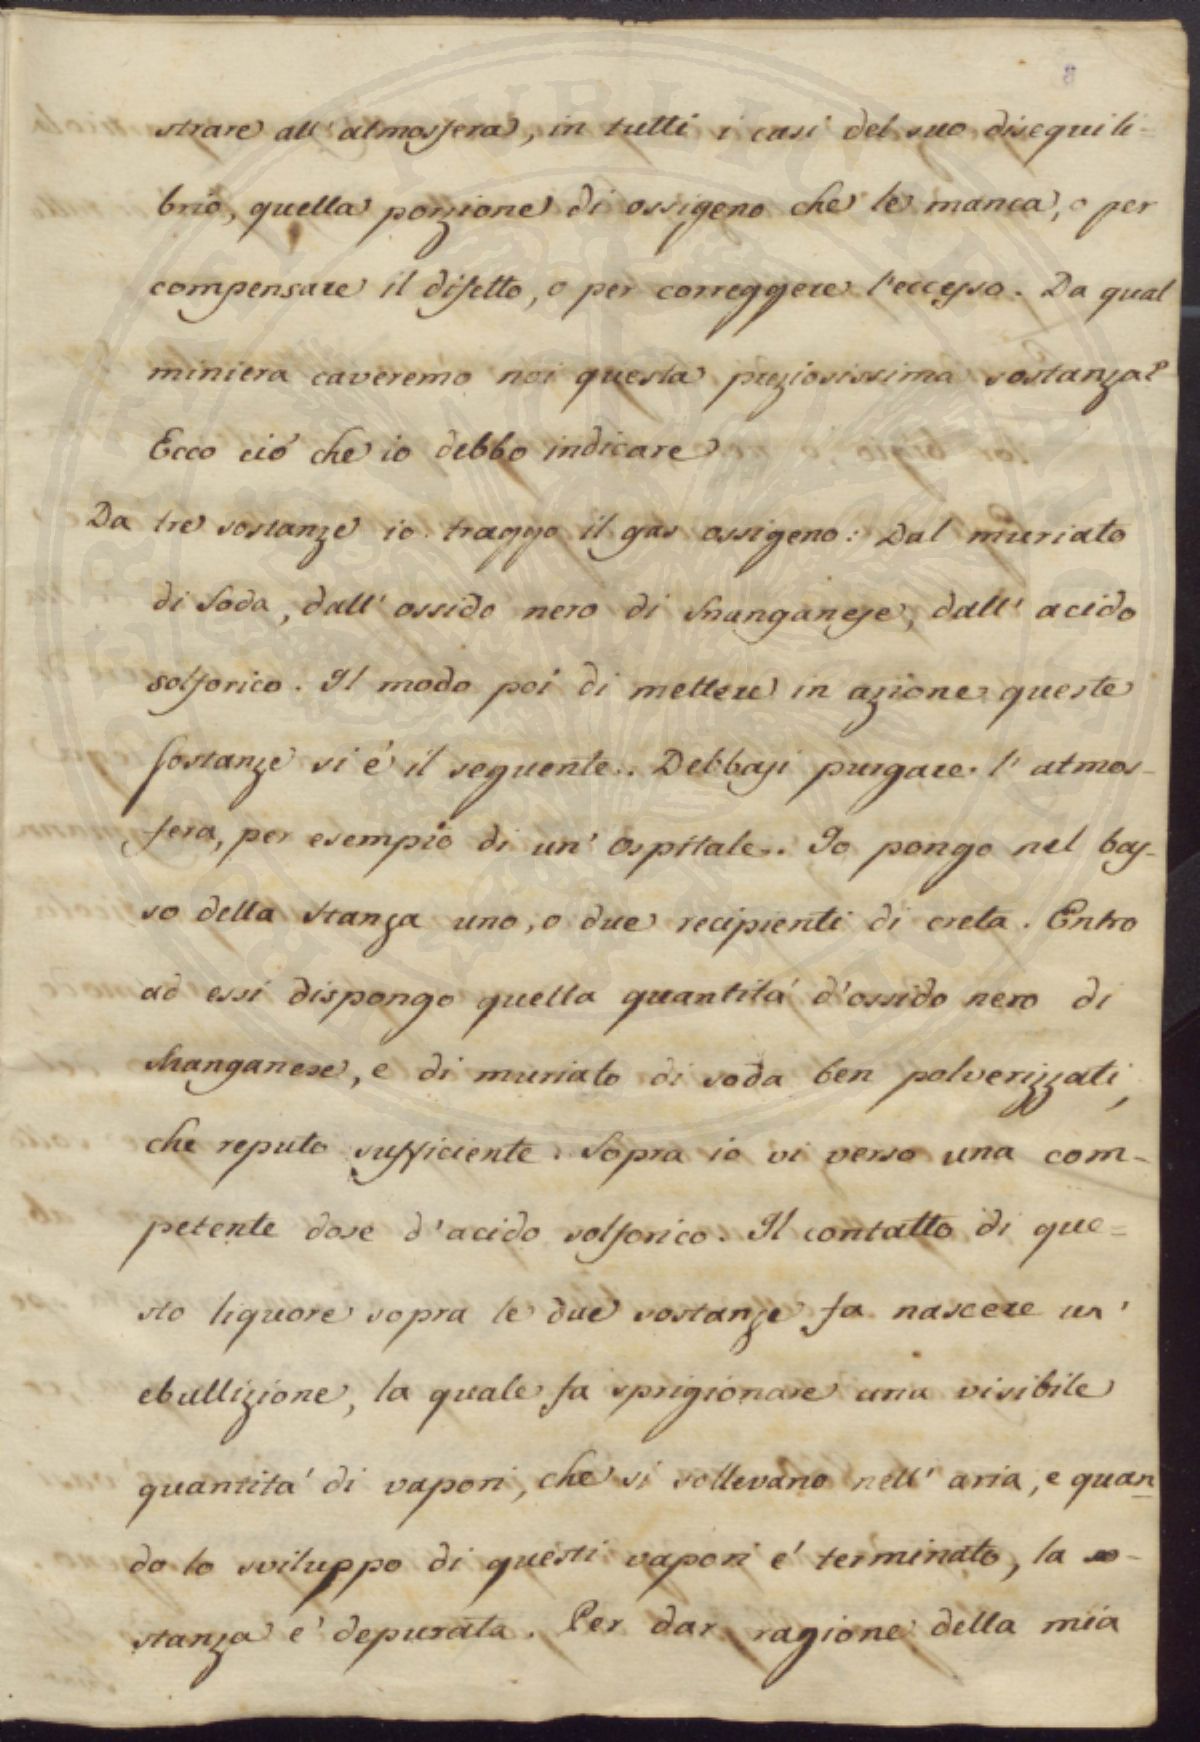 strare all'atmosfera, in tutti i casi del suo disequili=
brio, quella porzione di ossigeno che le manca, o per
compensare il difetto, o per correggere l'eccesso. Da qual
miniera caveremo noi questa preziosissima sostanza?
Ecco ció che io debbo indicare
Da tre sostanze io traggo il gas ossigeno: Dal muriato
di Soda, dall'ossido nero di Manganese, dall'acido
solforico. Il modo poi di mettere in azione queste
sostanze si é il seguente.. Debbasi purgare l'atmos-
fera, per esempio di un' Ospitale.. Io pongo nel bas-
so della stanza uno, o due recipienti di creta. Entro
ad essi dispongo quella quantitá d'ossido nero di
Manganese, e di muriato di soda ben polverizzati,
che reputo sufficiente. Sopra io vi verso una com-
petente dose d'acido solforico. Il contatto di que=
sto liquore sopra le due sostanze fa nascere un'
ebullizione, la quale fa sprigionare una visibile
quantitá di vapori, che si sollevano nell'aria, e quan
do lo sviluppo di questi vapori é terminato, la so-
stanza é depurata. Per dar ragione della mia